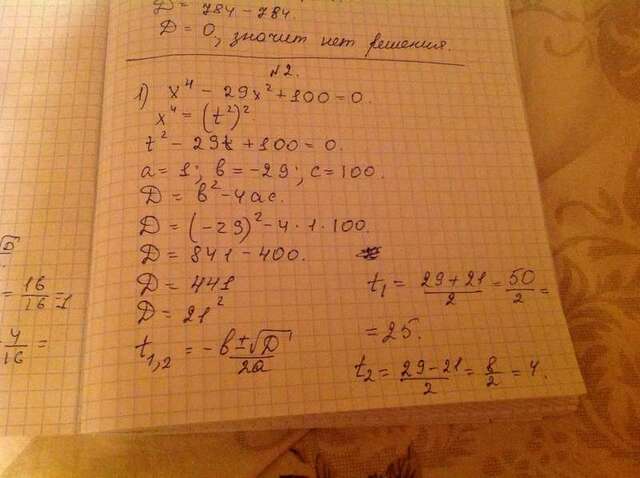 D = 784 - 784.
D = 0, значит нет решения.
№2.
1) x⁴ - 29x² + 100 = 0.
x⁴ = (t²)²
t² - 29t + 100 = 0.
a = 1; b = -29; c = 100.
D = b² - 4ac.
D = (-29)² - 4 · 1 · 100.
D = 841 - 400.
D = 441
D = 21²
t₁,₂ = -b ± √D / 2a
t₁ = 29 + 21 / 2 = 50 / 2 =
= 25.
t₂ = 29 - 21 / 2 = 8 / 2 = 4.
= 16 / 16 = 1
4 / 16 =